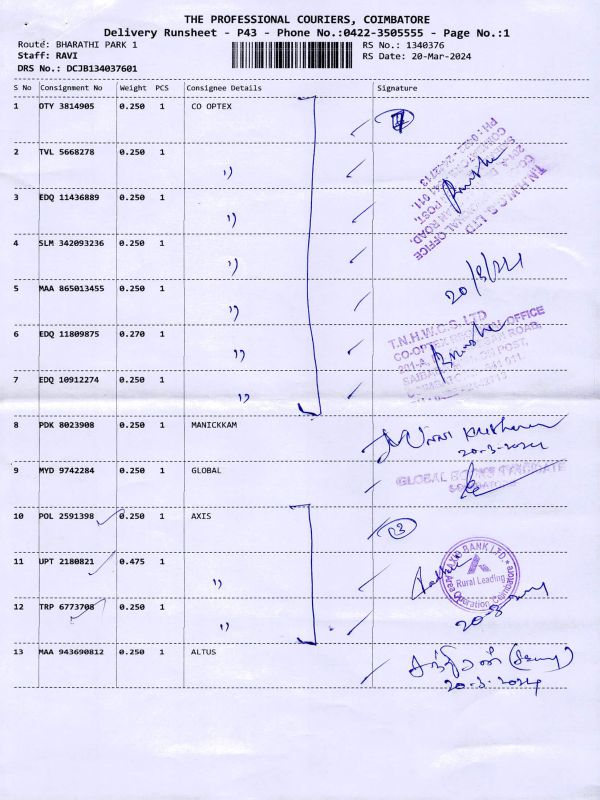 THE PROFESSIONAL COURIERS, COIMBATORE
Delivery Runsheet - P43 - Phone No.:0422-3505555 - Page No.:1
Route: BHARATHI PARK 1 RS No.: 1340376
Staff: RAVI RS Date: 20-Mar-2024
DRS No.: DCJB134037601
S No Consignment No Weight PCS Consignee Details Signature
1 DTY 3814905 0.250 1 CO OPTEX 7
2 TVL 5668278 0.250 1 ")
3 EDQ 11436889 0.250 1 ")
T.N.H.W.C.S. LTD
4 SLM 342093236 0.250 1 ")
20/3/24
5 MAA 865013455 0.250 1 ")
T.N.H.W.C.S. LTD
6 EDQ 11809875 0.270 1 ")
7 EDQ 10912274 0.250 1 ")
8 PDK 8023908 0.250 1 MANICKKAM
20-3-2024
9 MYD 9742284 0.250 1 GLOBAL
GLOBAL
10 POL 2591398 0.250 1 AXIS
11 UPT 2180821 0.475 1 ")
AXIS BANK LTD.
Rural Lending
Area Operation Coimbatore
12 TRP 6773708 0.250 1 ")
13 MAA 943690812 0.250 1 ALTUS
20-3-2024